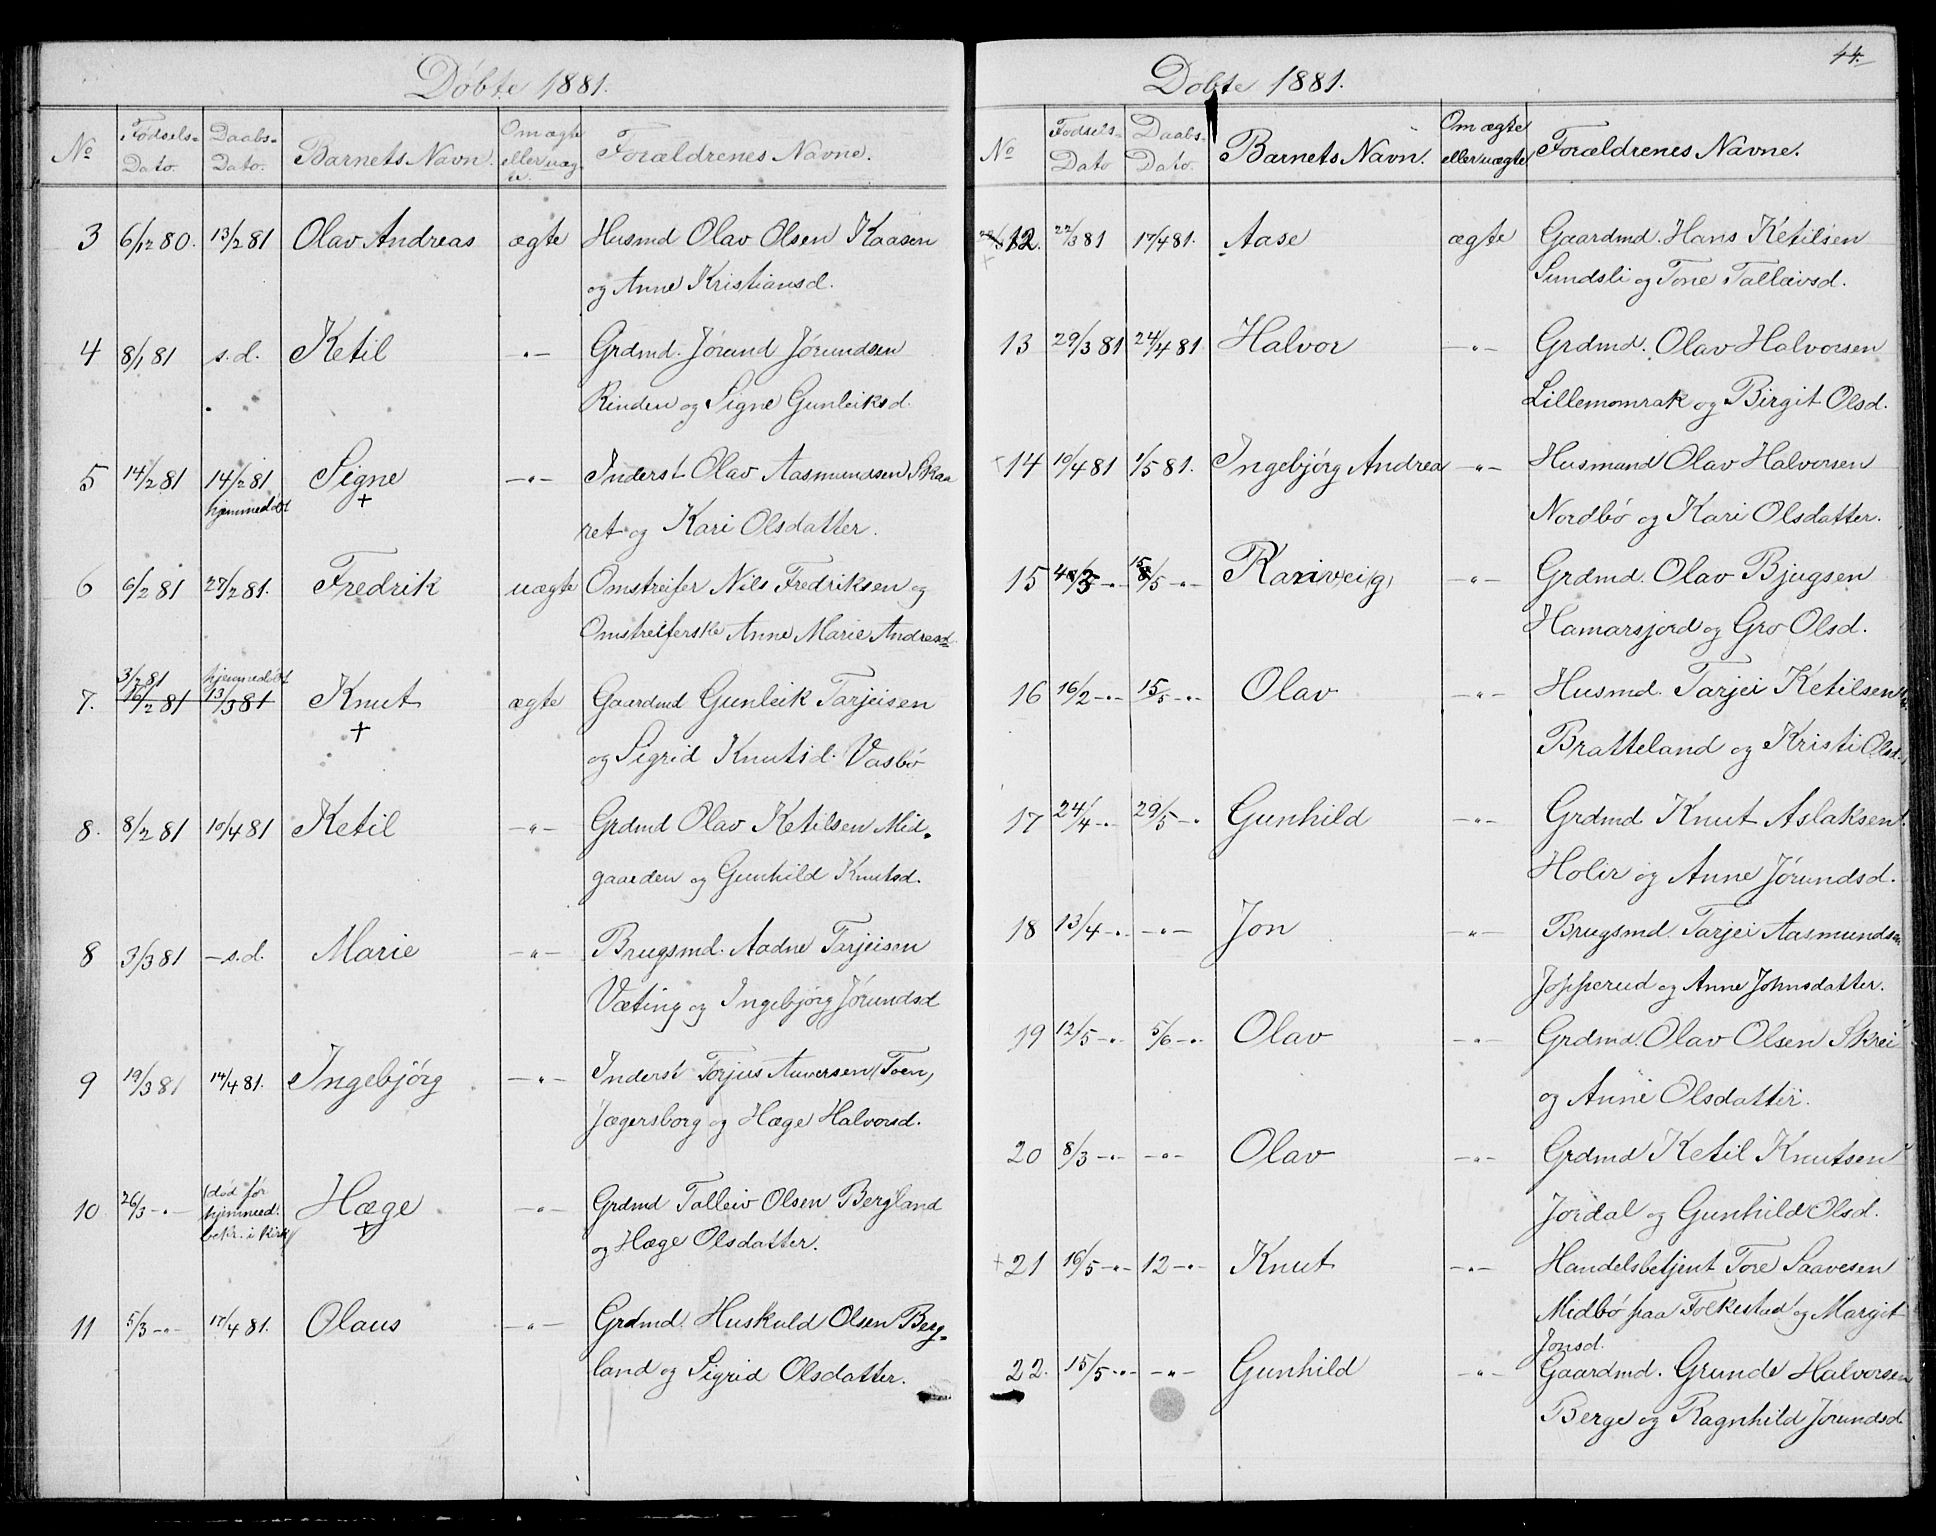 Døbte 1881.
No Fødsels-Dato. Daabs-Dato. Barnets Navn. Om ægte eller uægte. Forældrenes Navne.
3 6/12 80. 13/2 81 Olav Andreas ægte Husmd Olav Olsen Kaasen
og Anne Kristiansd.
4 8/1 81 s.d. Ketil -"- Grdmd. Jórund Jórundsen
Rinden og Signe Gunleiksd.
5 14/2 81 14/2 81 Signe -"- Inderst Olav Aasmundsen Skaa
hjemmedøbt + ret og Kari Olsdatter.
6 6/2 81 27/2 81. Fredrik uægte Omstreifer Nils Fredriksen og
Omstreiferske Anne Marie Andresd.
3/2 81 hjemmedøbt
7. 16/2 81 13/3 81 Knut ægte Gaardmd Gunleik Tarjeisen
+ og Sigrid Knutsd. Vasbø
8. 8/2 81 10/4 81 Ketil -"- Grdmd Olav Ketilsen Mid-
gaarden og Gunhild Knutsd.
8 3/3 81 -s.d. Marie -"- Brugsmd. Aadne Tarjeisen
Væting og Ingebjórg Jórundsd
9 19/3 81 14/4 81. Ingebjórg -"- Inderst Torjus Auversen (Toen)
Jægersborg og Hæge Halvorsd.
10 26/3 -"- (død før hjemmed. bekr. i kirk) Hæge + -"- Grdmd Talleiv Olsen Bergland
og Hæge Olsdatter.
11 5/3 -"- 17/4 81. Olaus -"- Grdmd. Huskuld Olsen Berg-
land og Sigrid Olsdatter.
44.
Døbte 1881.
No Fødsels-Dato Daabs-Dato. Barnets Navn. Om ægte eller uægte Forældrenes Navne.
12. 22/3 81 17/4 81. Aase ægte Gaardmd. Hans Ketilsen
+ Sundsli og Tone Talleivsd.
13 29/3 81 24/4 81 Halvor -"- Grdmd. Olav Halvorsen
Lillemomrak og Birgit Olsd.
+ 14 10/4 81 1/5 81. Ingebjórg Andrea -"- Husmand Olav Halvorsen
Nordbó og Kari Olsdatter.
15 4/3 -"- 15/5 -"- Kariveig -"- Grdmd. Olav Bjugsen
Hamarsjord og Gro Olsd.
16 16/2 -"- 15/5 -"- Olav -"- Husmd. Tarjei Ketilsen
Bratteland og Kristi Olsd.
17 24/4 -"- 29/5 -"- Gunhild -"- Grdmd Knut Aslaksen
Holir og Anne Jórundsd.
18 13/4 -"- -"- Jon -"- Brugsmd. Tarjei Aasmundsen
Jópperud og Anne Johnsdatter.
19 12/5 -"- 5/6 -"- Olav -"- Grdmd. Olav Olsen Skrei
og Anne Olsdatter.
20 8/3 -"- -"- Olav -"- Grdmd Ketil Knutsen
Jordal og Gunhild Olsd.
+ 21 16/5 -"- 12 -"- Knut -"- Handelsbetjent Tore Saavesen
Midbó paa Folkestad og Margit
Jonsd.
22. 15/5 -"- -"- Gunhild -"- Gaardmd. Grunde Halvorsen
Berge og Ragnhild Jórundsd.